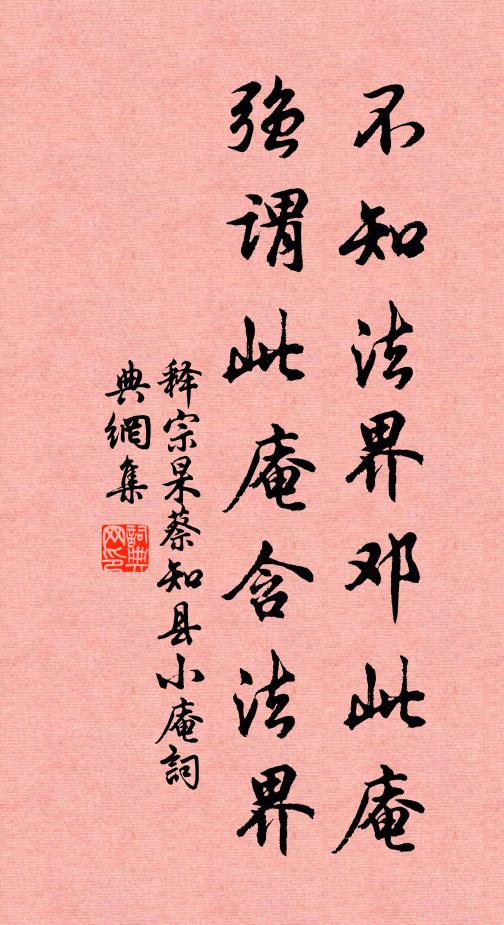 不知法界邓此庵
强谓此庵含法界
释宗杲蔡知县小庵詞
典網集
詞典网印